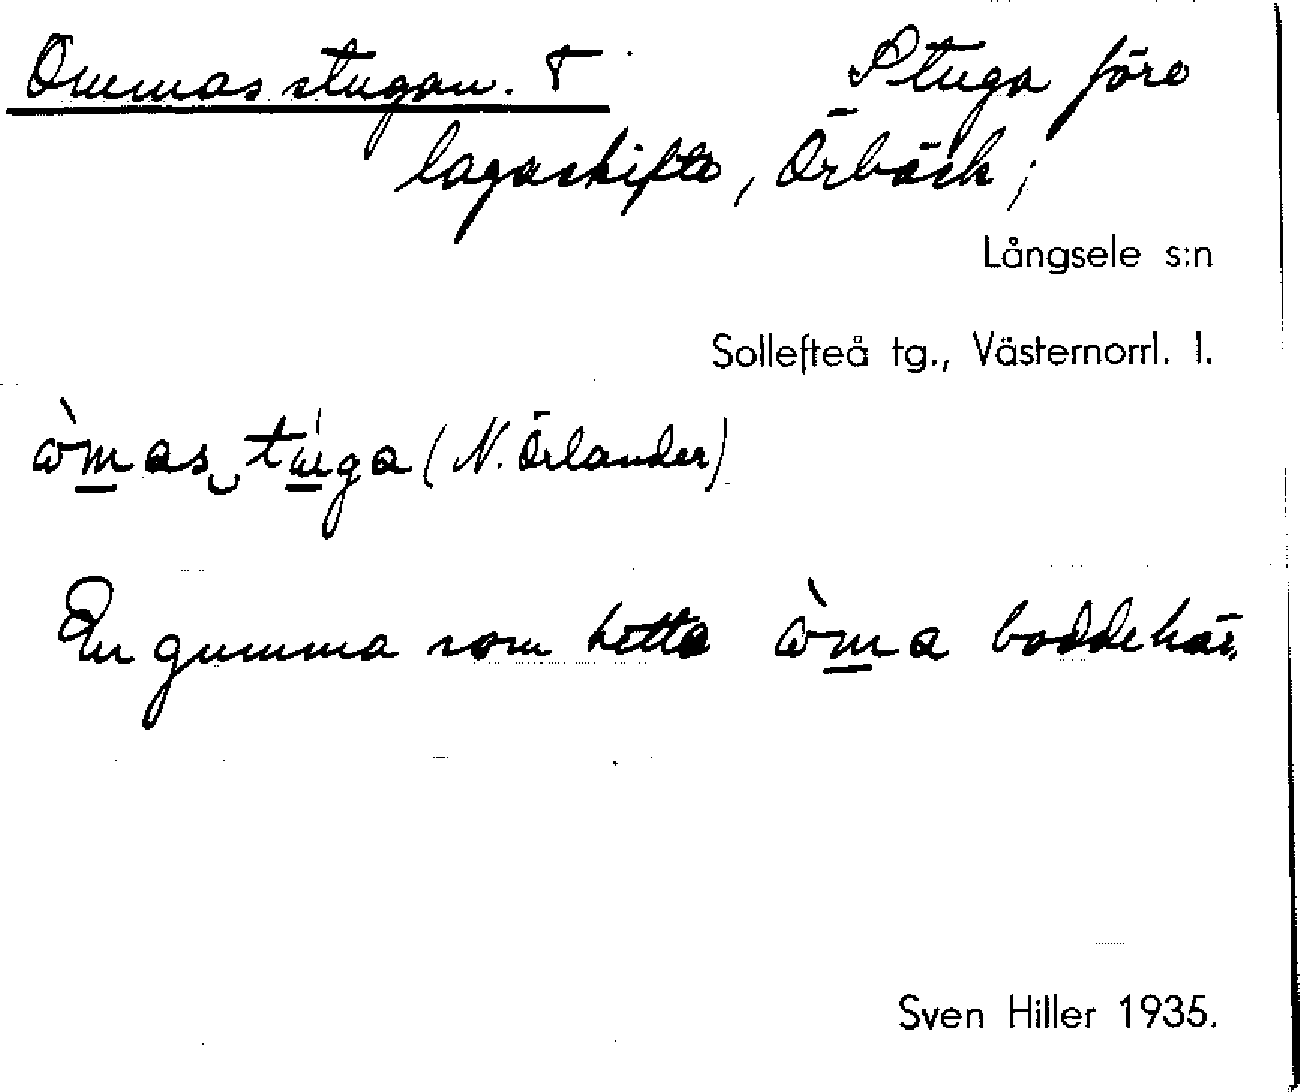 Ommas stugan. † Stuga före
lagaskifte, Örbäck;
Långsele s:n
Sollefteå tg., Västernorrl. l.
(N. Örlander)
En gumma som hette boddehär.
Sven Hiller 1935.